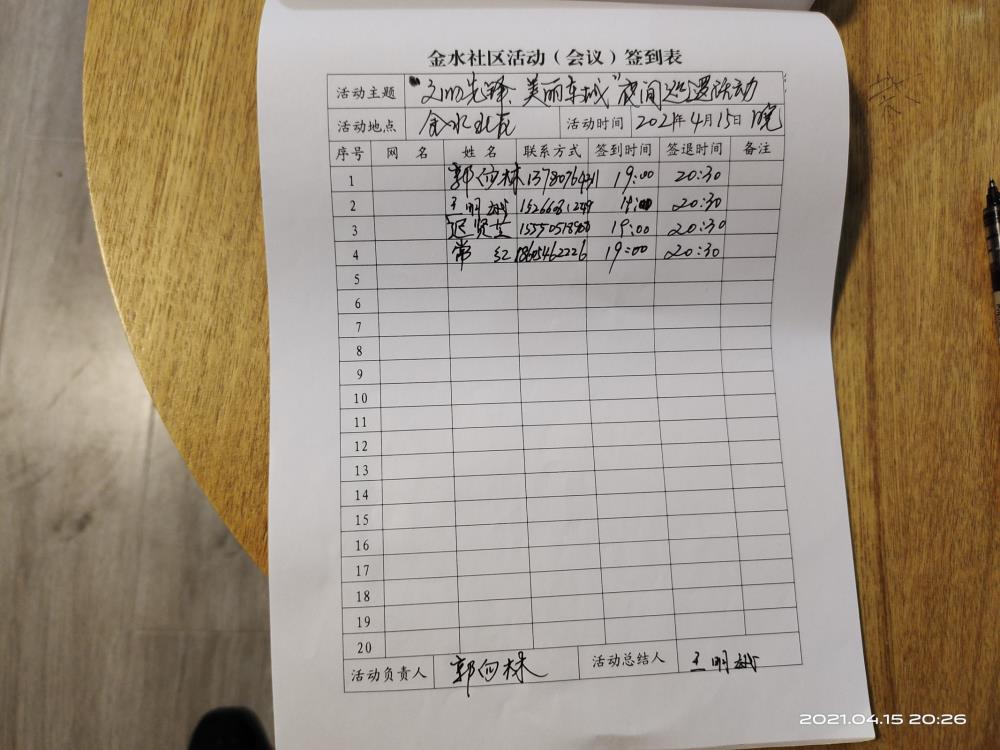 金水社区活动(会议)签到表
活动主题 "文明先锋、美丽东城"夜间巡逻活动
活动地点 金水北苑 活动时间 2021年4月15日 晚
序号 网 名 姓 名 联系方式 签到时间 签退时间 备注
1 郭向林 19:00 20:30
2 王明 19:00 20:30
3 迟贤芝 19:00 20:30
4 常 红 18605462226 19:00 20:30
5
6
7
8
9
10
11
12
13
14
15
16
17
18
19
20
活动负责人 郭向林 活动总结人 王明
2021.04.15 20:26